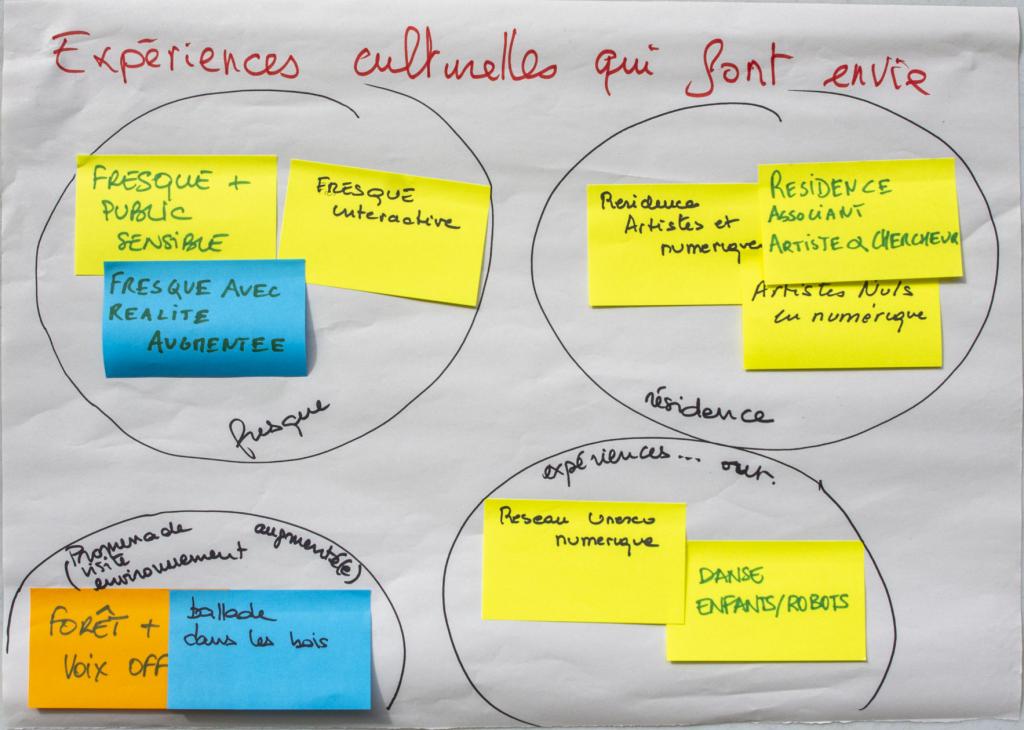 Expériences culturelles qui font envie
FRESQUE +
PUBLIC
SENSIBLE
FRESQUE
interactive
FRESQUE AVEC
REALITE
AUGMENTEE
fresque
Residence
Artistes et
numerique
RESIDENCE
ASSOCIANT
ARTISTE & CHERCHEUR
Artistes Nuls
en numérique
résidence
Promenade
visite
environnement
augmenté(e)
FORÊT +
VOIX OFF
ballade
dans les bois
expériences...
Reseau Unesco
numerique
DANSE
ENFANTS/ROBOTS